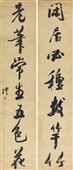 閒居必種數竿竹
老筆常生五色花